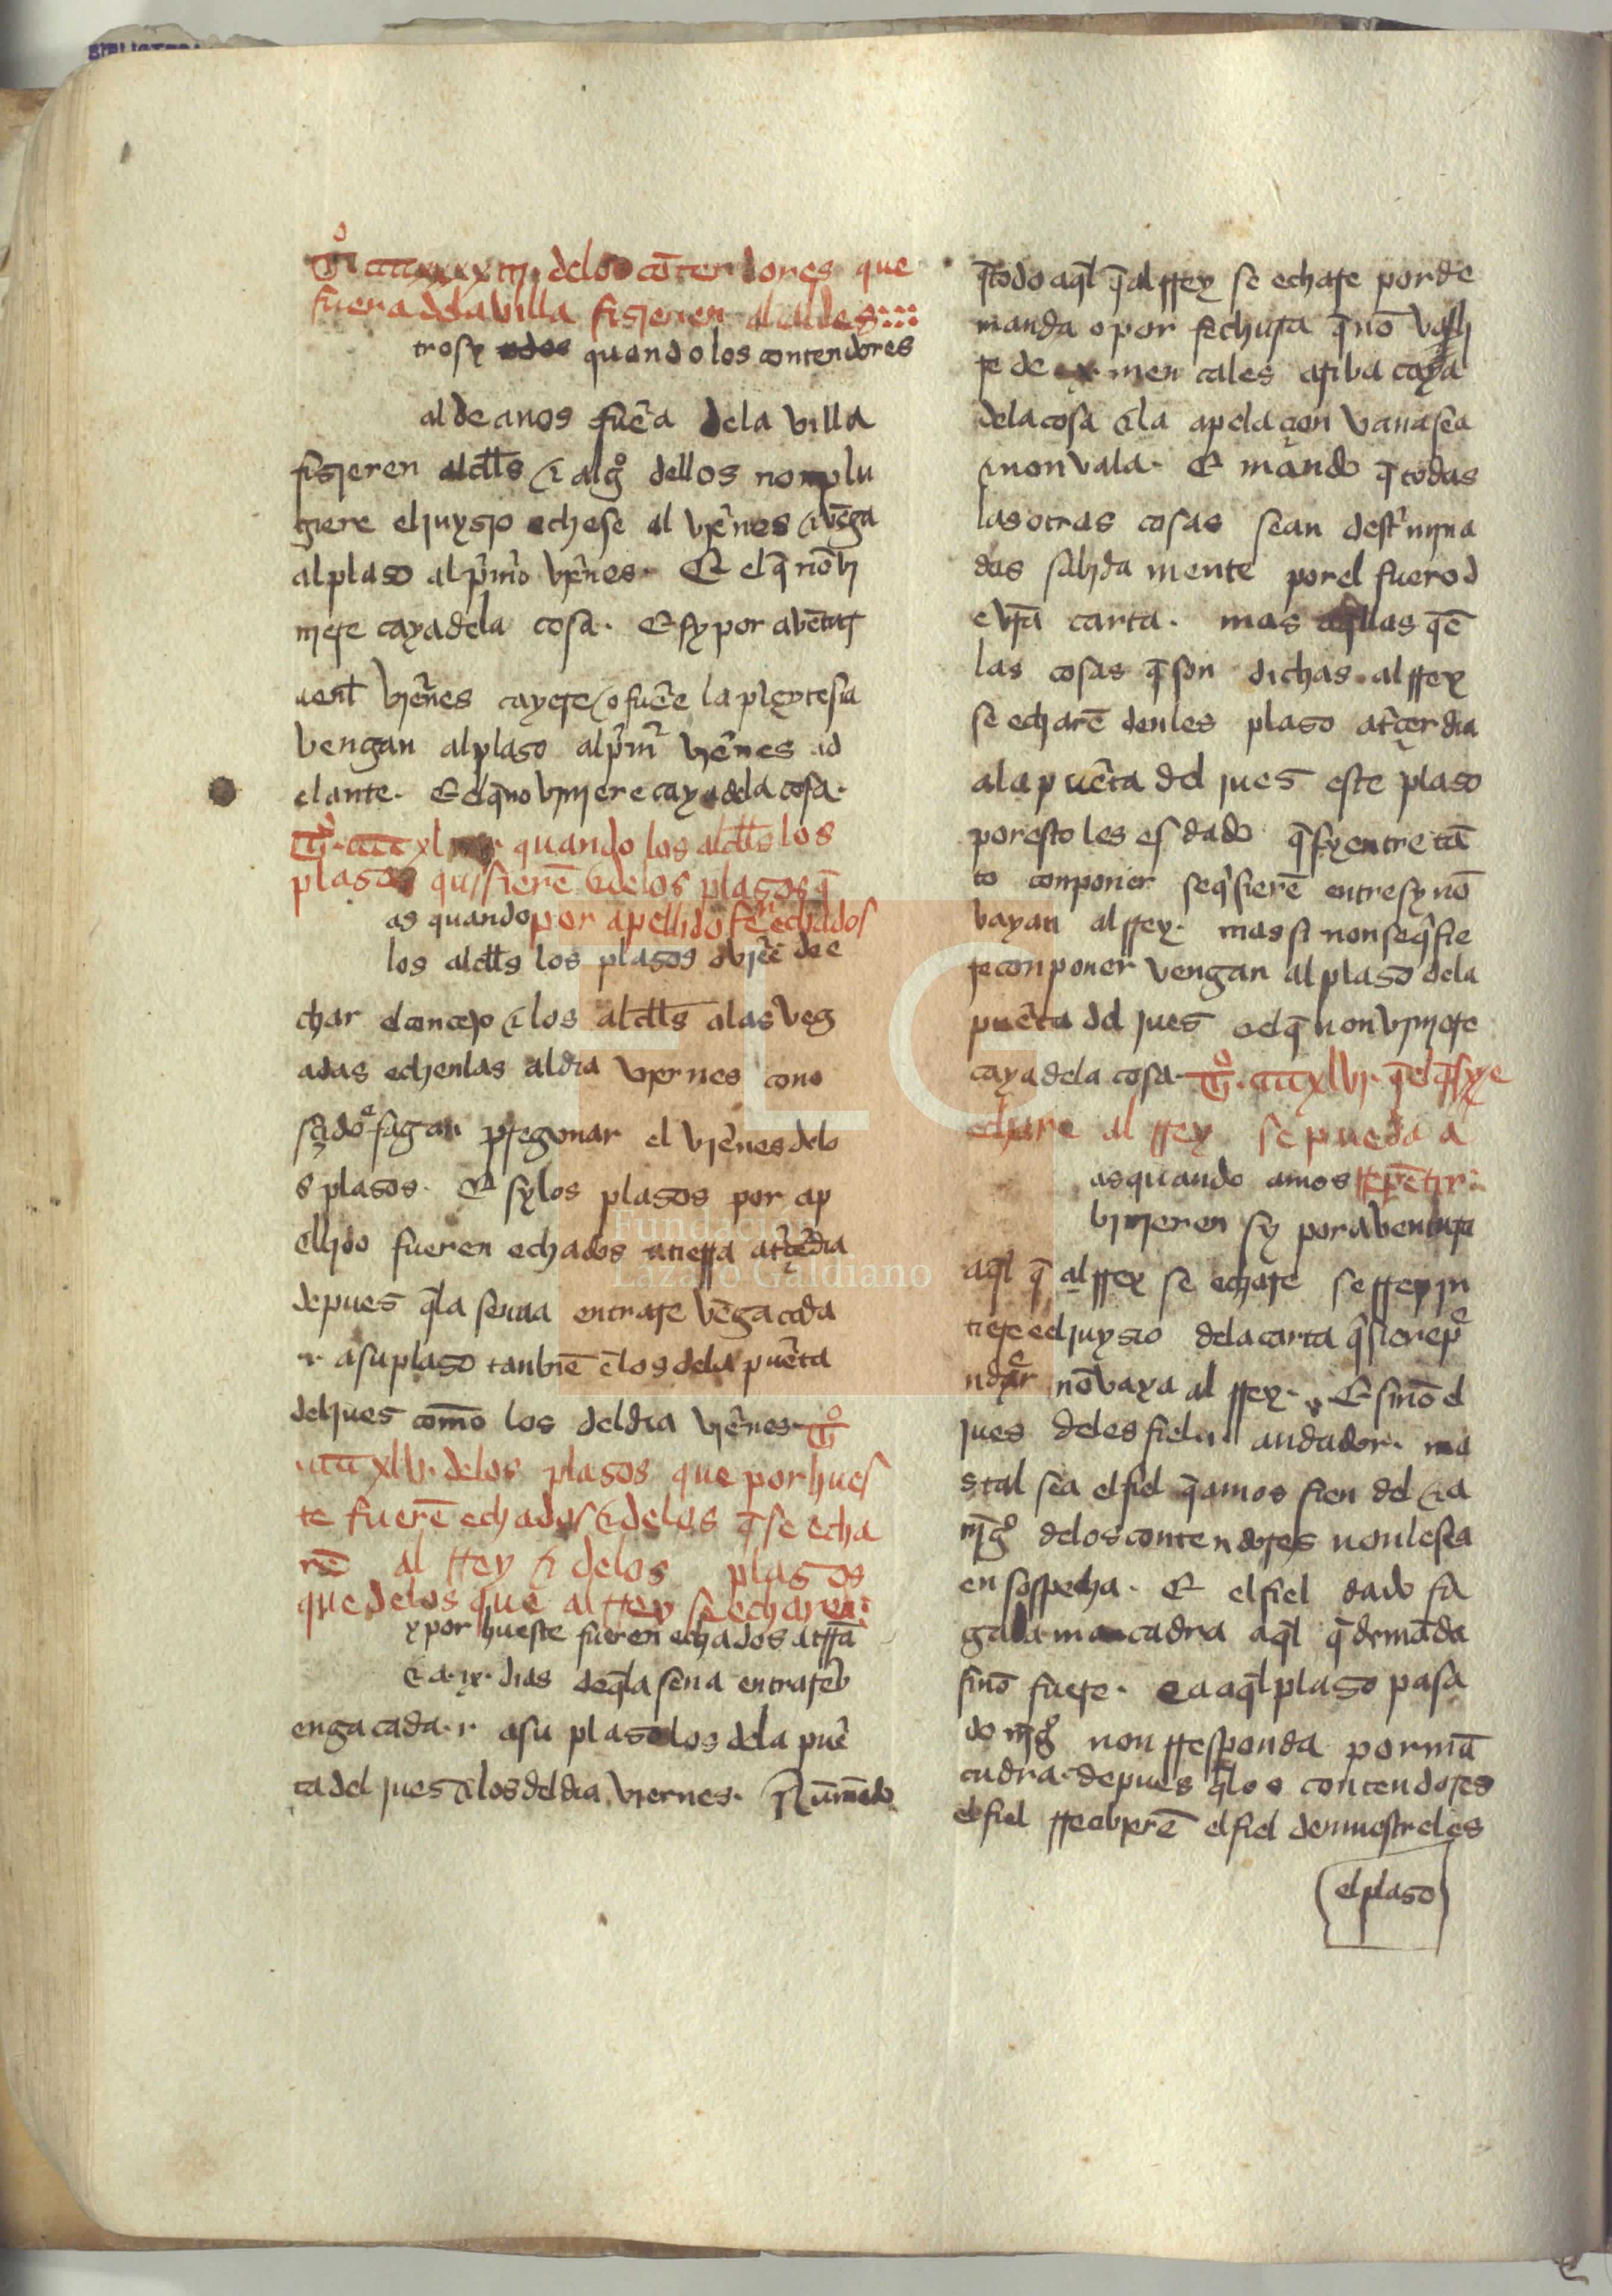 Tº ccc xxxx iij. delos cōtendores que
fuera dela villa fisieren alcaldes
trosy quando los contendores
aldeanos fuēa dela villa
fisieren alcłłs ⁊ algº dellos non plu
giere el juysio echese al viēnes ⁊ vēga
al plaso al pⁱmo viēnes. Et el q̄ nō vi
niere caya dela cosa. E sy por abētur
vient viēnes cayere o fuēe la pleytesia
vengan al plaso al pⁱmº viēnes ad
elante. E el q̄ no viniere caya dela cosa.
Tº. ccc xl quando los alcłłs los
plasos quisierē ⁊ delos plasos q̄
por apellido fuerē echados
as quando
los alcłłs los plasos oviēē de e
char el concejo ⁊ los alcłłs alas veg
adas echenlas al dia viernes cono
sçido ⁊ fagan pregonar el viēnes delo
s plasos. Et sy los plasos por ap
ellido fueren echados a tierra atºçedia
depues q̄ la senna entrare vēga cada
.i. a su plaso tanbiē ē los dela puēta
del jues como los del dia viēnes. Tº
.ccc xlv. delos plasos que por hues
te fuerē echados ⁊ delos q̄ se echa
rē al rrey ⁊ delos plasos
que delos que al rrey se echaren:
y por hueste fueren echados a trrā
⁊ a .ix. dias deq̄ la sena entrare v
enga cada .i. a su plaso los dela puē
ta del jues ⁊ los del dia viernes.
q̄ todo aq̄l q̄ al rrey se echare por de
manda o por fechura q̄ nō vali
re de mencales arriba caya
dela cosa ⁊ la apelaçon vana sea
⁊ non vala. E mando q̄ todas
las otras cosas sean det̄mina
das sabida mente por el fuero d
e vr̄a carta. mas aq̄llas q̄ ē
las cosas q̄ son dichas al rrey
se echarē denles plaso atºçerdia
ala puēta del jues este plaso
por esto les es dado q̄ sy entre tā
to componer se q̄sierē entre sy nō
vayan al rrey. mas si non se q̄sie
re conponer vengan al plaso dela
puēta del jues ⁊ el q̄ non viniere
caya dela cosa. Tº. ccc xlvj. q̄ el q̄ sye
echare al rrey se pueda a
rrepētir:
as quando amos
vinieren sy por aventura
aq̄l q̄ al rrey se echare se rrepin
tiere el juysio dela carta q̄siere pē
ndᵉr nō vaya al rrey. E sinō el
jues deles fiel .i. andador. ma
s tal sea el fiel q̄ amos fien del ⁊ a
nīgº delos contendores non le sea
en sospecha. Et el fiel dado fa
ga la mancadra aq̄l q̄ demāda
sinō fuere. E a aq̄l plaso pasa
do nīgº non rresponda por mā
cudra. depues q̄ los contendores
el fiel rreçebierē el fiel demuestreles
el plaso